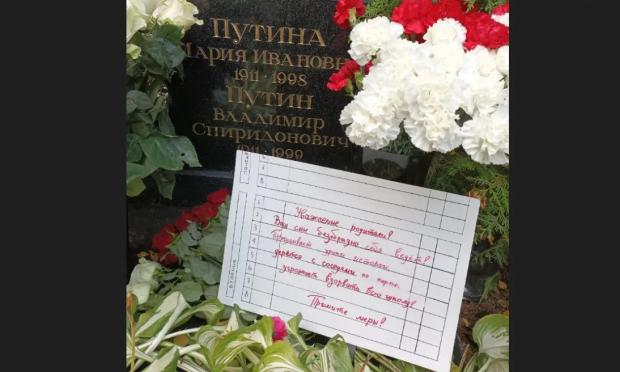 ПУТИНА
МАРИЯ ИВАНОВН
1911-1998
ПУТИН
ВЛАДИМИР
СПИРИДОНОВИЧ
1911-1999
8
1
2
3
4
5
6
7
8
Уважаемые родители!
Ваш сын безобразно себя ведёт!
Прогуливает уроки истории,
дерётся с соседями по парте,
угрожает взорвать всю школу!
Примите меры!